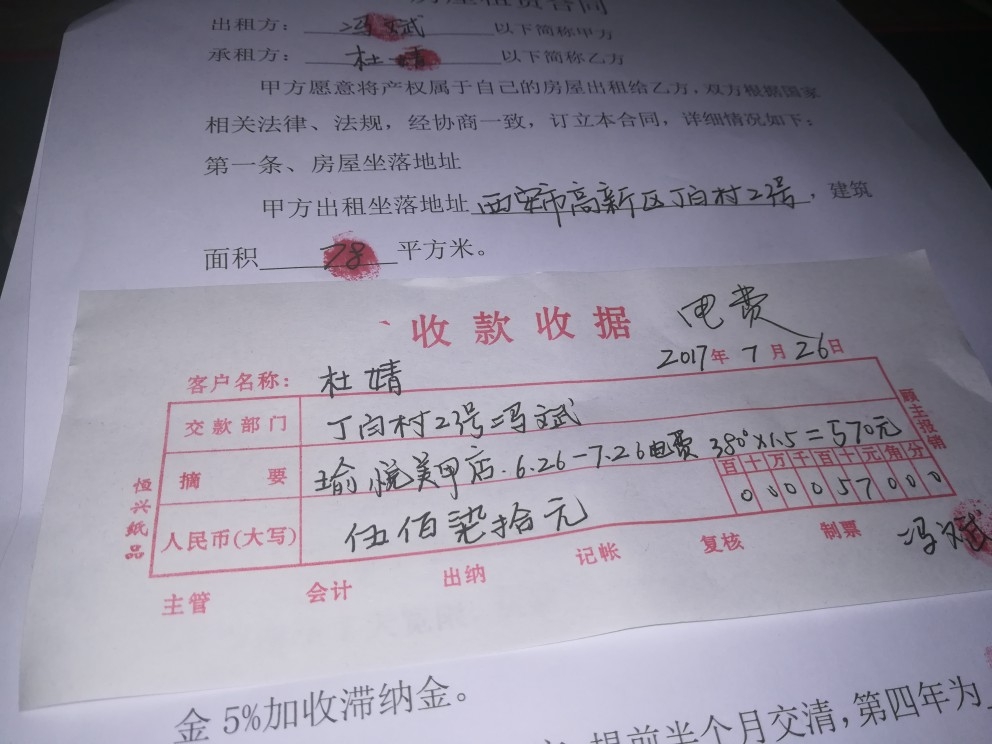 房屋租赁合同
出租方：冯文斌 以下简称甲方
承租方：杜婧 以下简称乙方
甲方愿意将产权属于自己的房屋出租给乙方，双方根据国家
相关法律、法规，经协商一致，订立本合同，详细情况如下：
第一条、房屋坐落地址
甲方出租坐落地址西安市高新区丁白村2号，建筑
面积 78 平方米。
收款收据 电费
2017年7月26日
客户名称：杜婧
交款部门 丁白村2号冯文斌
摘要 瑜悦美甲店.6.26-7.26电费 380°×1.5=570元
百十万千百十元角分
0 0 0 0 5 7 0 0 0
人民币(大写) 伍佰柒拾元
顾主报销
恒兴纸品
主管 会计 出纳 记帐 复核 制票 冯文斌
金5%加收滞纳金。
提前半个月交清，第四年为